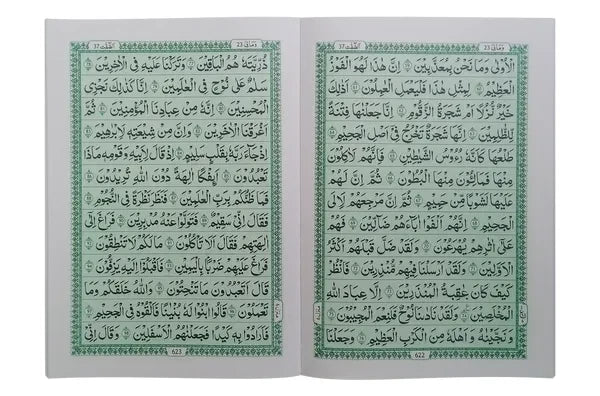 وَمَالِیَ 23
الصّٰٓفّٰت 37
الْاُوْلٰى وَمَا نَحْنُ بِمُعَذَّبِیْنَ ۝ اِنَّ هٰذَا لَهُوَ الْفَوْزُ
الْعَظِیْمُ ۝ لِمِثْلِ هٰذَا فَلْیَعْمَلِ الْعٰمِلُوْنَ ۝ اَذٰلِكَ
خَیْرٌ نُّزُلًا اَمْ شَجَرَةُ الزَّقُّوْمِ ۝ اِنَّا جَعَلْنٰهَا فِتْنَةً
لِّلظّٰلِمِیْنَ ۝ اِنَّهَا شَجَرَةٌ تَخْرُجُ فِیْۤ اَصْلِ الْجَحِیْمِ ۝
طَلْعُهَا كَاَنَّهٗ رُءُوْسُ الشَّیٰطِیْنِ ۝ فَاِنَّهُمْ لَاٰكِلُوْنَ
مِنْهَا فَمَالِـُٔوْنَ مِنْهَا الْبُطُوْنَ ۝ ثُمَّ اِنَّ لَهُمْ
عَلَیْهَا لَشَوْبًا مِّنْ حَمِیْمٍ ۝ ثُمَّ اِنَّ مَرْجِعَهُمْ لَاۡاِلَى
الْجَحِیْمِ ۝ اِنَّهُمْ اَلْفَوْا اٰبَآءَهُمْ ضَآلِّیْنَ ۝ فَهُمْ
عَلٰۤى اٰثٰرِهِمْ یُهْرَعُوْنَ ۝ وَلَقَدْ ضَلَّ قَبْلَهُمْ اَكْثَرُ
الْاَوَّلِیْنَ ۝ وَلَقَدْ اَرْسَلْنَا فِیْهِمْ مُّنْذِرِیْنَ ۝ فَانْظُرْ
كَیْفَ كَانَ عَاقِبَةُ الْمُنْذَرِیْنَ ۝ اِلَّا عِبَادَ اللّٰهِ
الْمُخْلَصِیْنَ ۝ وَلَقَدْ نَادٰىنَا نُوْحٌ فَلَنِعْمَ الْمُجِیْبُوْنَ ۝
وَنَجَّیْنٰهُ وَاَهْلَهٗ مِنَ الْكَرْبِ الْعَظِیْمِ ۝ وَجَعَلْنَا
622
وَمَالِیَ 23
الصّٰٓفّٰت 37
ذُرِّیَّتَهٗ هُمُ الْبٰقِیْنَ ۝ وَتَرَكْنَا عَلَیْهِ فِی الْاٰخِرِیْنَ ۝
سَلٰمٌ عَلٰى نُوْحٍ فِی الْعٰلَمِیْنَ ۝ اِنَّا كَذٰلِكَ نَجْزِی
الْمُحْسِنِیْنَ ۝ اِنَّهٗ مِنْ عِبَادِنَا الْمُؤْمِنِیْنَ ۝ ثُمَّ
اَغْرَقْنَا الْاٰخَرِیْنَ ۝ وَاِنَّ مِنْ شِیْعَتِهٖ لَاِبْرٰهِیْمَ ۝
اِذْ جَآءَ رَبَّهٗ بِقَلْبٍ سَلِیْمٍ ۝ اِذْ قَالَ لِاَبِیْهِ وَقَوْمِهٖ مَاذَا
تَعْبُدُوْنَ ۝ اَىِٕفْكًا اٰلِهَةً دُوْنَ اللّٰهِ تُرِیْدُوْنَ ۝
فَمَا ظَنُّكُمْ بِرَبِّ الْعٰلَمِیْنَ ۝ فَنَظَرَ نَظْرَةً فِی النُّجُوْمِ ۝
فَقَالَ اِنِّیْ سَقِیْمٌ ۝ فَتَوَلَّوْا عَنْهُ مُدْبِرِیْنَ ۝ فَرَاغَ اِلٰۤى
اٰلِهَتِهِمْ فَقَالَ اَلَا تَاْكُلُوْنَ ۝ مَا لَكُمْ لَا تَنْطِقُوْنَ ۝
فَرَاغَ عَلَیْهِمْ ضَرْبًۢا بِالْیَمِیْنِ ۝ فَاَقْبَلُوْۤا اِلَیْهِ یَزِفُّوْنَ ۝
قَالَ اَتَعْبُدُوْنَ مَا تَنْحِتُوْنَ ۝ وَاللّٰهُ خَلَقَكُمْ وَمَا
تَعْمَلُوْنَ ۝ قَالُوا ابْنُوْا لَهٗ بُنْیَانًا فَاَلْقُوْهُ فِی الْجَحِیْمِ ۝
فَاَرَادُوْا بِهٖ كَیْدًا فَجَعَلْنٰهُمُ الْاَسْفَلِیْنَ ۝ وَقَالَ اِنِّیْ
623